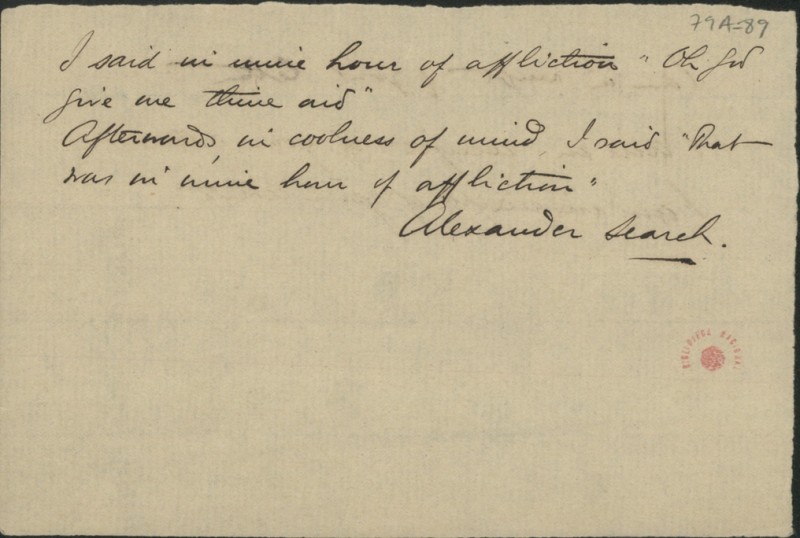 79A-89
I said in mine hour of affliction "Oh God
give me thine aid"
Afterwards, in coolness of mind, I said "That
was in mine hour of affliction"
Alexander Search.
BIBLIOTECA NACIONAL